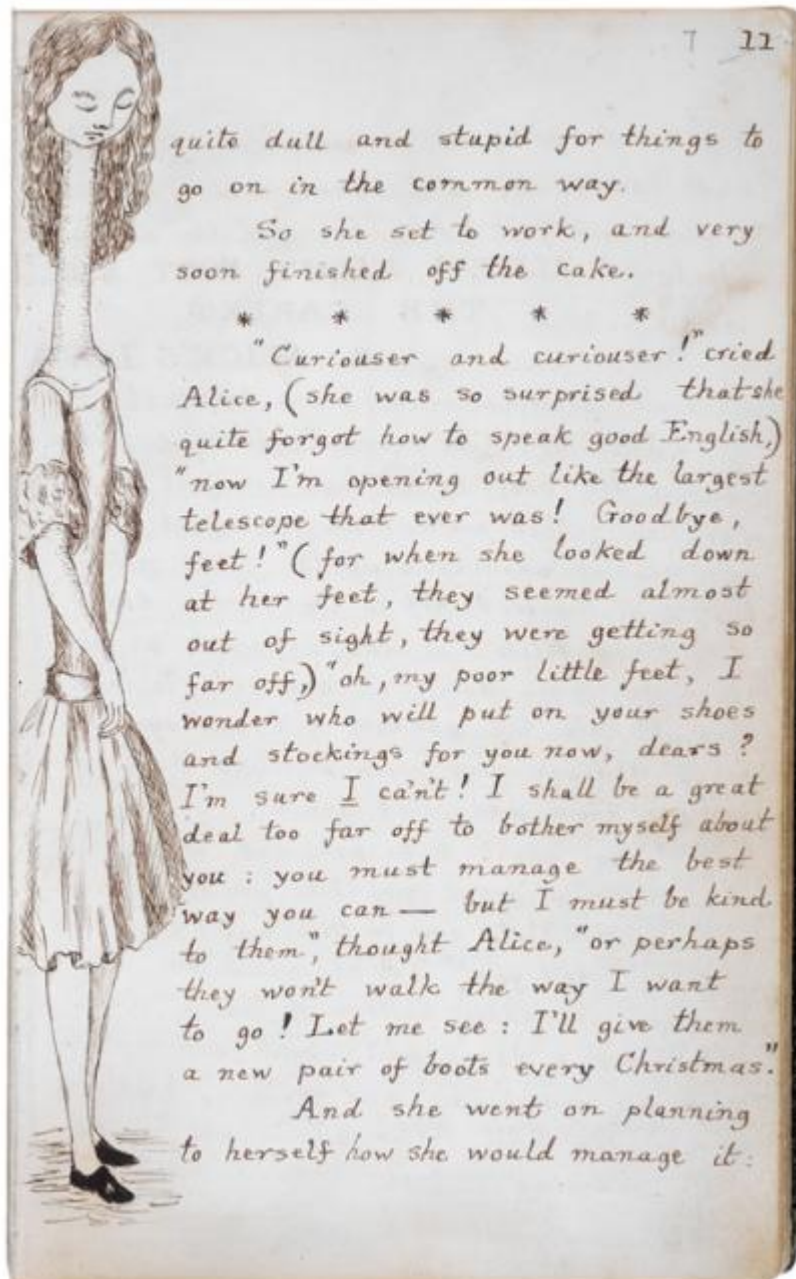 7 11
quite dull and stupid for things to
go on in the common way.
So she set to work, and very
soon finished off the cake.
* * * * *
"Curiouser and curiouser!" cried
Alice, (she was so surprised that she
quite forgot how to speak good English,)
"now I'm opening out like the largest
telescope that ever was! Goodbye,
feet!" (for when she looked down
at her feet, they seemed almost
out of sight, they were getting so
far off,) "oh, my poor little feet, I
wonder who will put on your shoes
and stockings for you now, dears?
I'm sure I ca'n't! I shall be a great
deal too far off to bother myself about
you: you must manage the best
way you can — but I must be kind
to them", thought Alice, "or perhaps
they won't walk the way I want
to go! Let me see: I'll give them
a new pair of boots every Christmas."
And she went on planning
to herself how she would manage it: